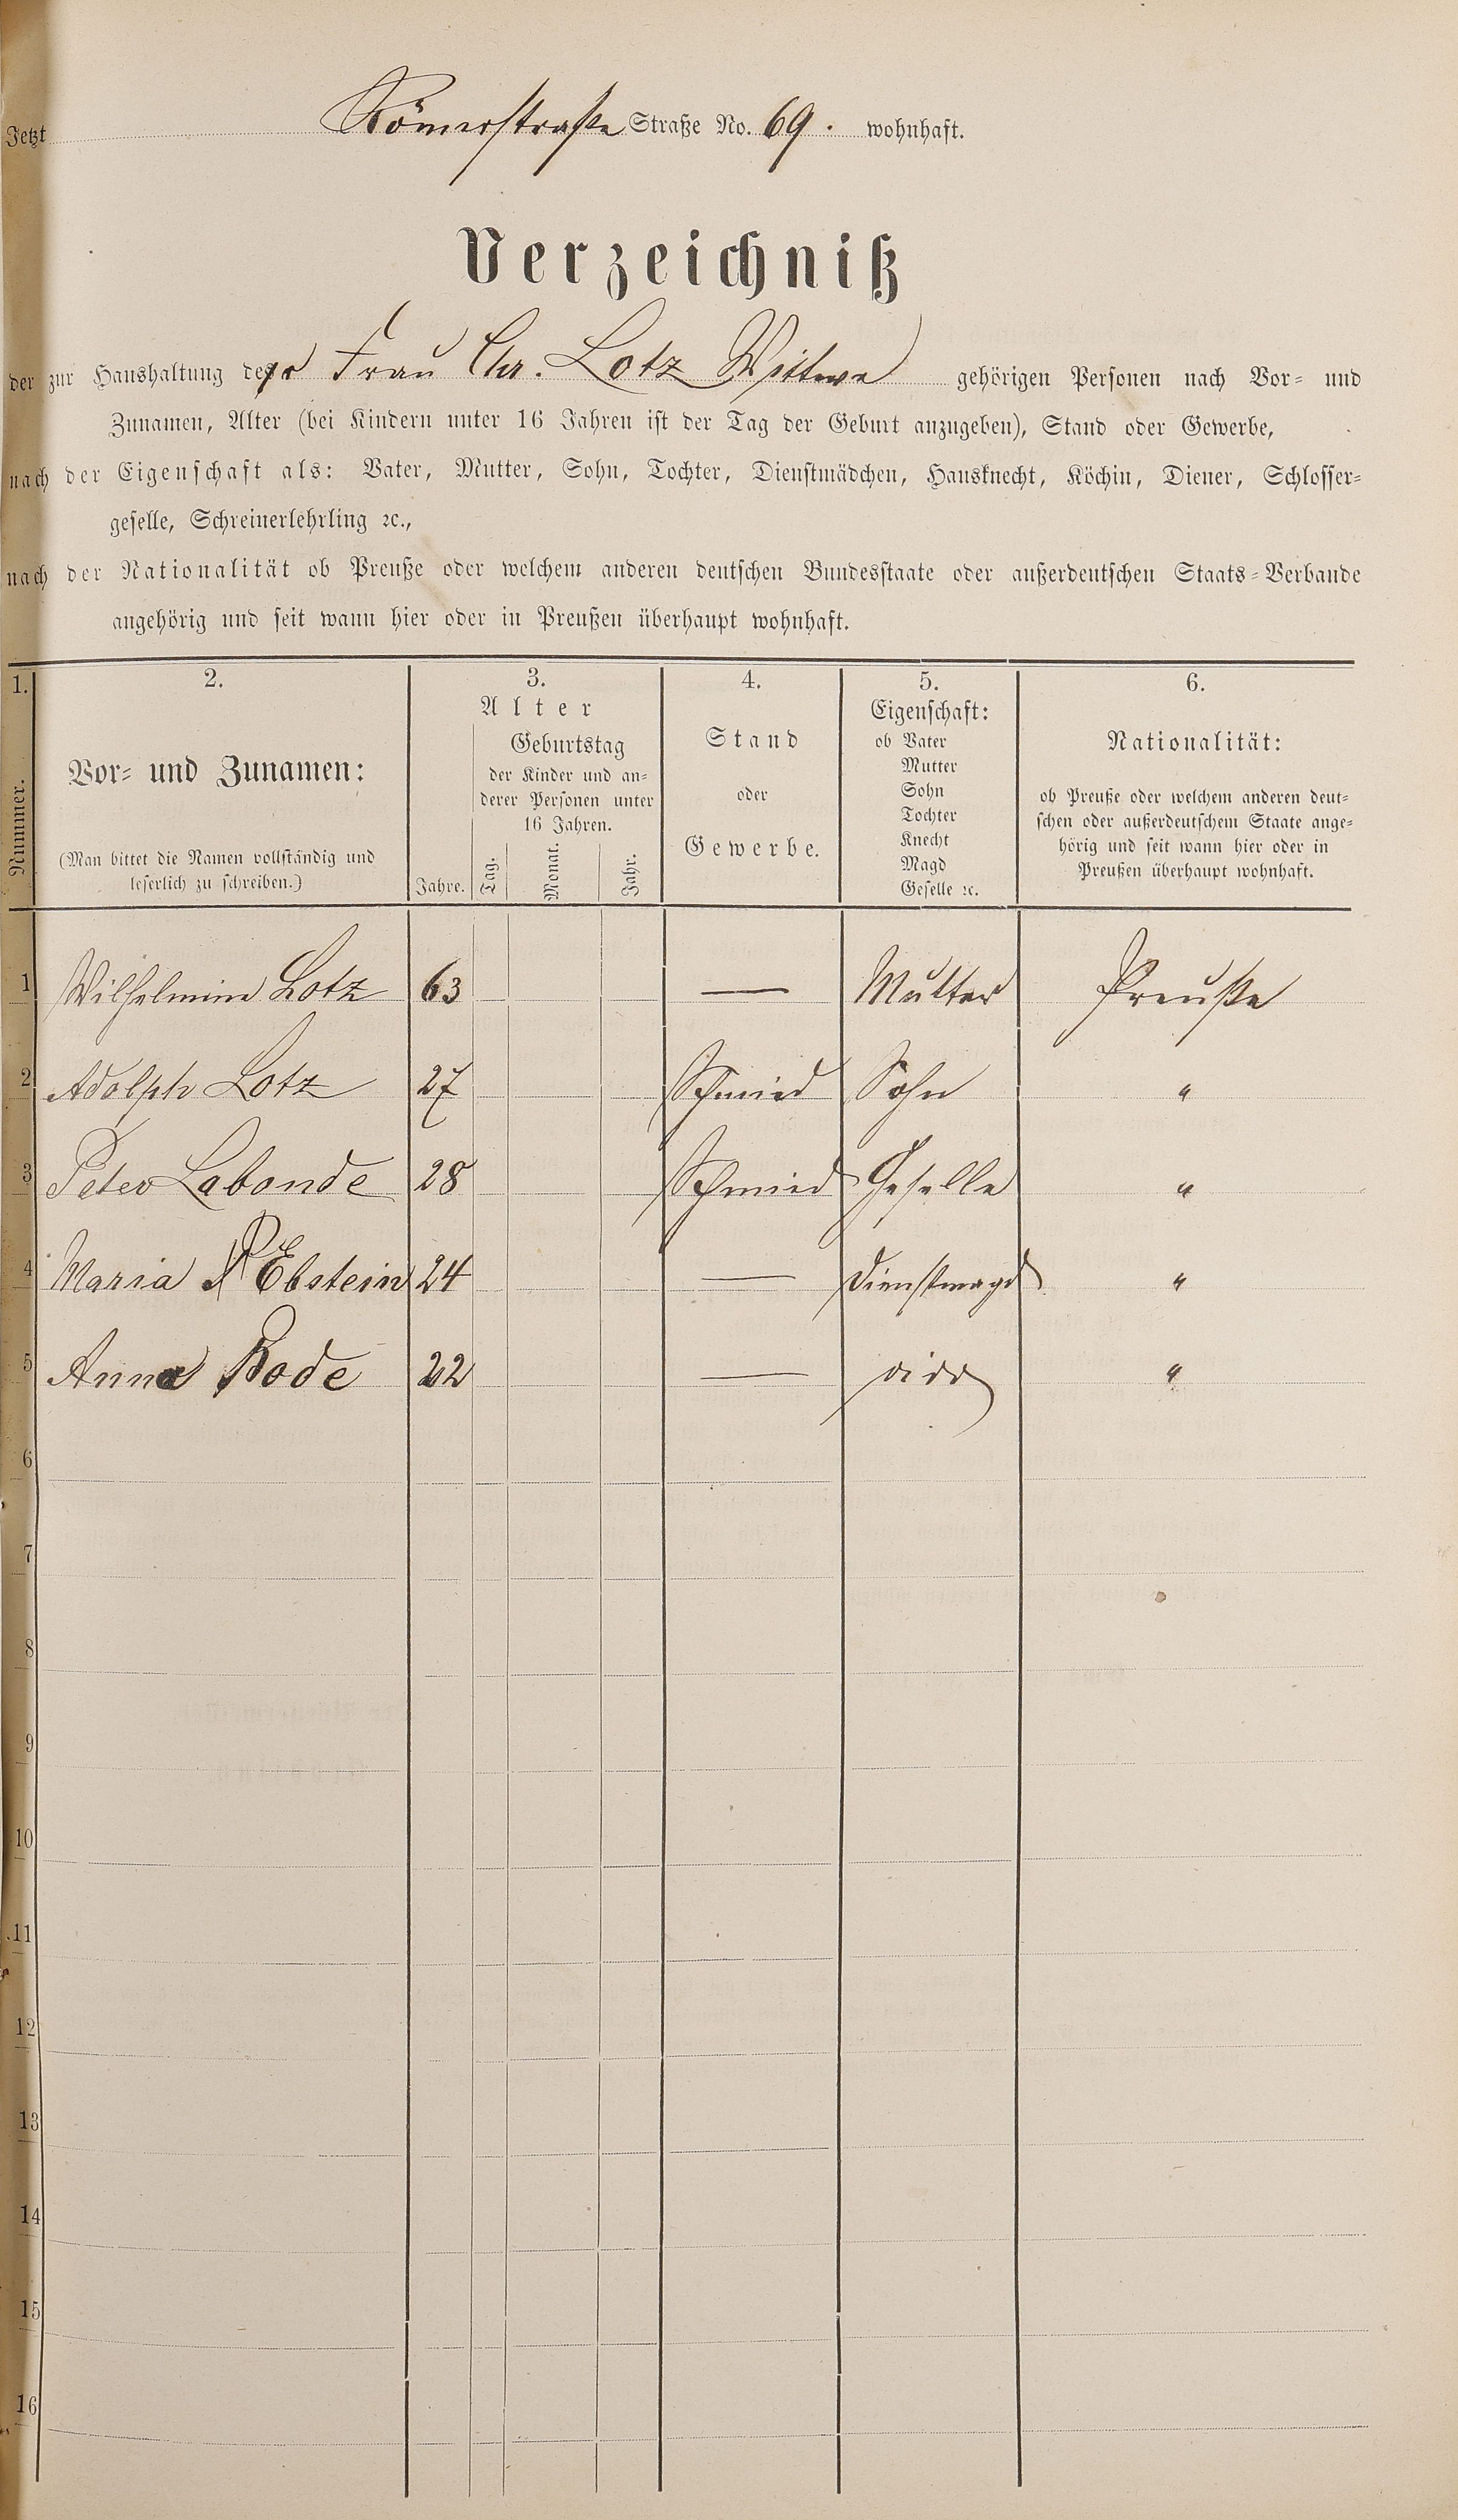 Jetzt Römerstraße Straße No. 69. wohnhaft.
Verzeichniß
der zur Haushaltung der Frau Chr. Lotz Wittwe gehörigen Personen nach Vor- und
Zunamen, Alter (bei Kindern unter 16 Jahren ist der Tag der Geburt anzugeben), Stand oder Gewerbe,
nach der Eigenschaft als: Vater, Mutter, Sohn, Tochter, Dienstmädchen, Hausknecht, Köchin, Diener, Schlosser-
geselle, Schreinerlehrling ꝛc.,
nach der Nationalität ob Preuße oder welchem anderen deutschen Bundesstaate oder außerdeutschen Staats-Verbande
angehörig und seit wann hier oder in Preußen überhaupt wohnhaft.
1.
Nummer.
2.
Vor- und Zunamen:
(Man bittet die Namen vollständig und
leserlich zu schreiben.)
3.
Alter
Jahre.
Geburtstag
der Kinder und an-
derer Personen unter
16 Jahren.
Tag.
Monat.
Jahr.
4.
Stand
oder
Gewerbe.
5.
Eigenschaft:
ob Vater
Mutter
Sohn
Tochter
Knecht
Magd
Geselle ꝛc.
6.
Nationalität:
ob Preuße oder welchem anderen deut-
schen oder außerdeutschem Staate ange-
hörig und seit wann hier oder in
Preußen überhaupt wohnhaft.
1 Wilhelmine Lotz 63 — Mutter Preuße
2 Adolph Lotz 27 Schmied Sohn "
3 Peter Labonde 28 Schmied Geselle "
4 Maria Ebstein 24 — Dienstmagd "
5 Anna Bode 22 — dito "
6
7
8
9
10
11
12
13
14
15
16